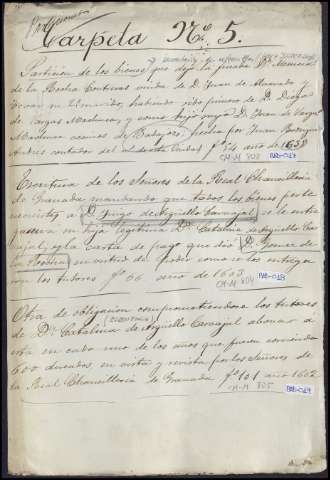 Carpeta Nº 5.
Particion de los bienes que dejó la finada Dª Mencia
de la Rocha Contreras viuda de D. Juan de Alvarado
de Vargas Machuca, y como hijo suyo D. Juan de Vargas
Machuca vecinos de Badajoz, hecha por Juan
Andres contador del al de esta Ciudad fº 54 año de 1659
CM-M 803
Escritura de los Señores de la Real Chancilleria
de Granada mandando que todos los bienes perte
necientes á D. Iñigo de Arguello Carvajal se le entre
guasen su hija legitima Dª Catalina de Arguello Car
vajal, y la carta de pago que dió D. Gomez de
la Rocha en virtud de Poder como se los entrega
ron los tutores fº 66 año de 1603
CM-M 804
Otra de obligacion comprometiendose los tutores
de Dª Catalina de Arguello Carvajal abonar a
esta en cada uno de los años que fuesen corriendo
600 ducados, en vista y revista por los Señores de
la Real Chancilleria de Granada fº 101 año 1602
CM-M 805